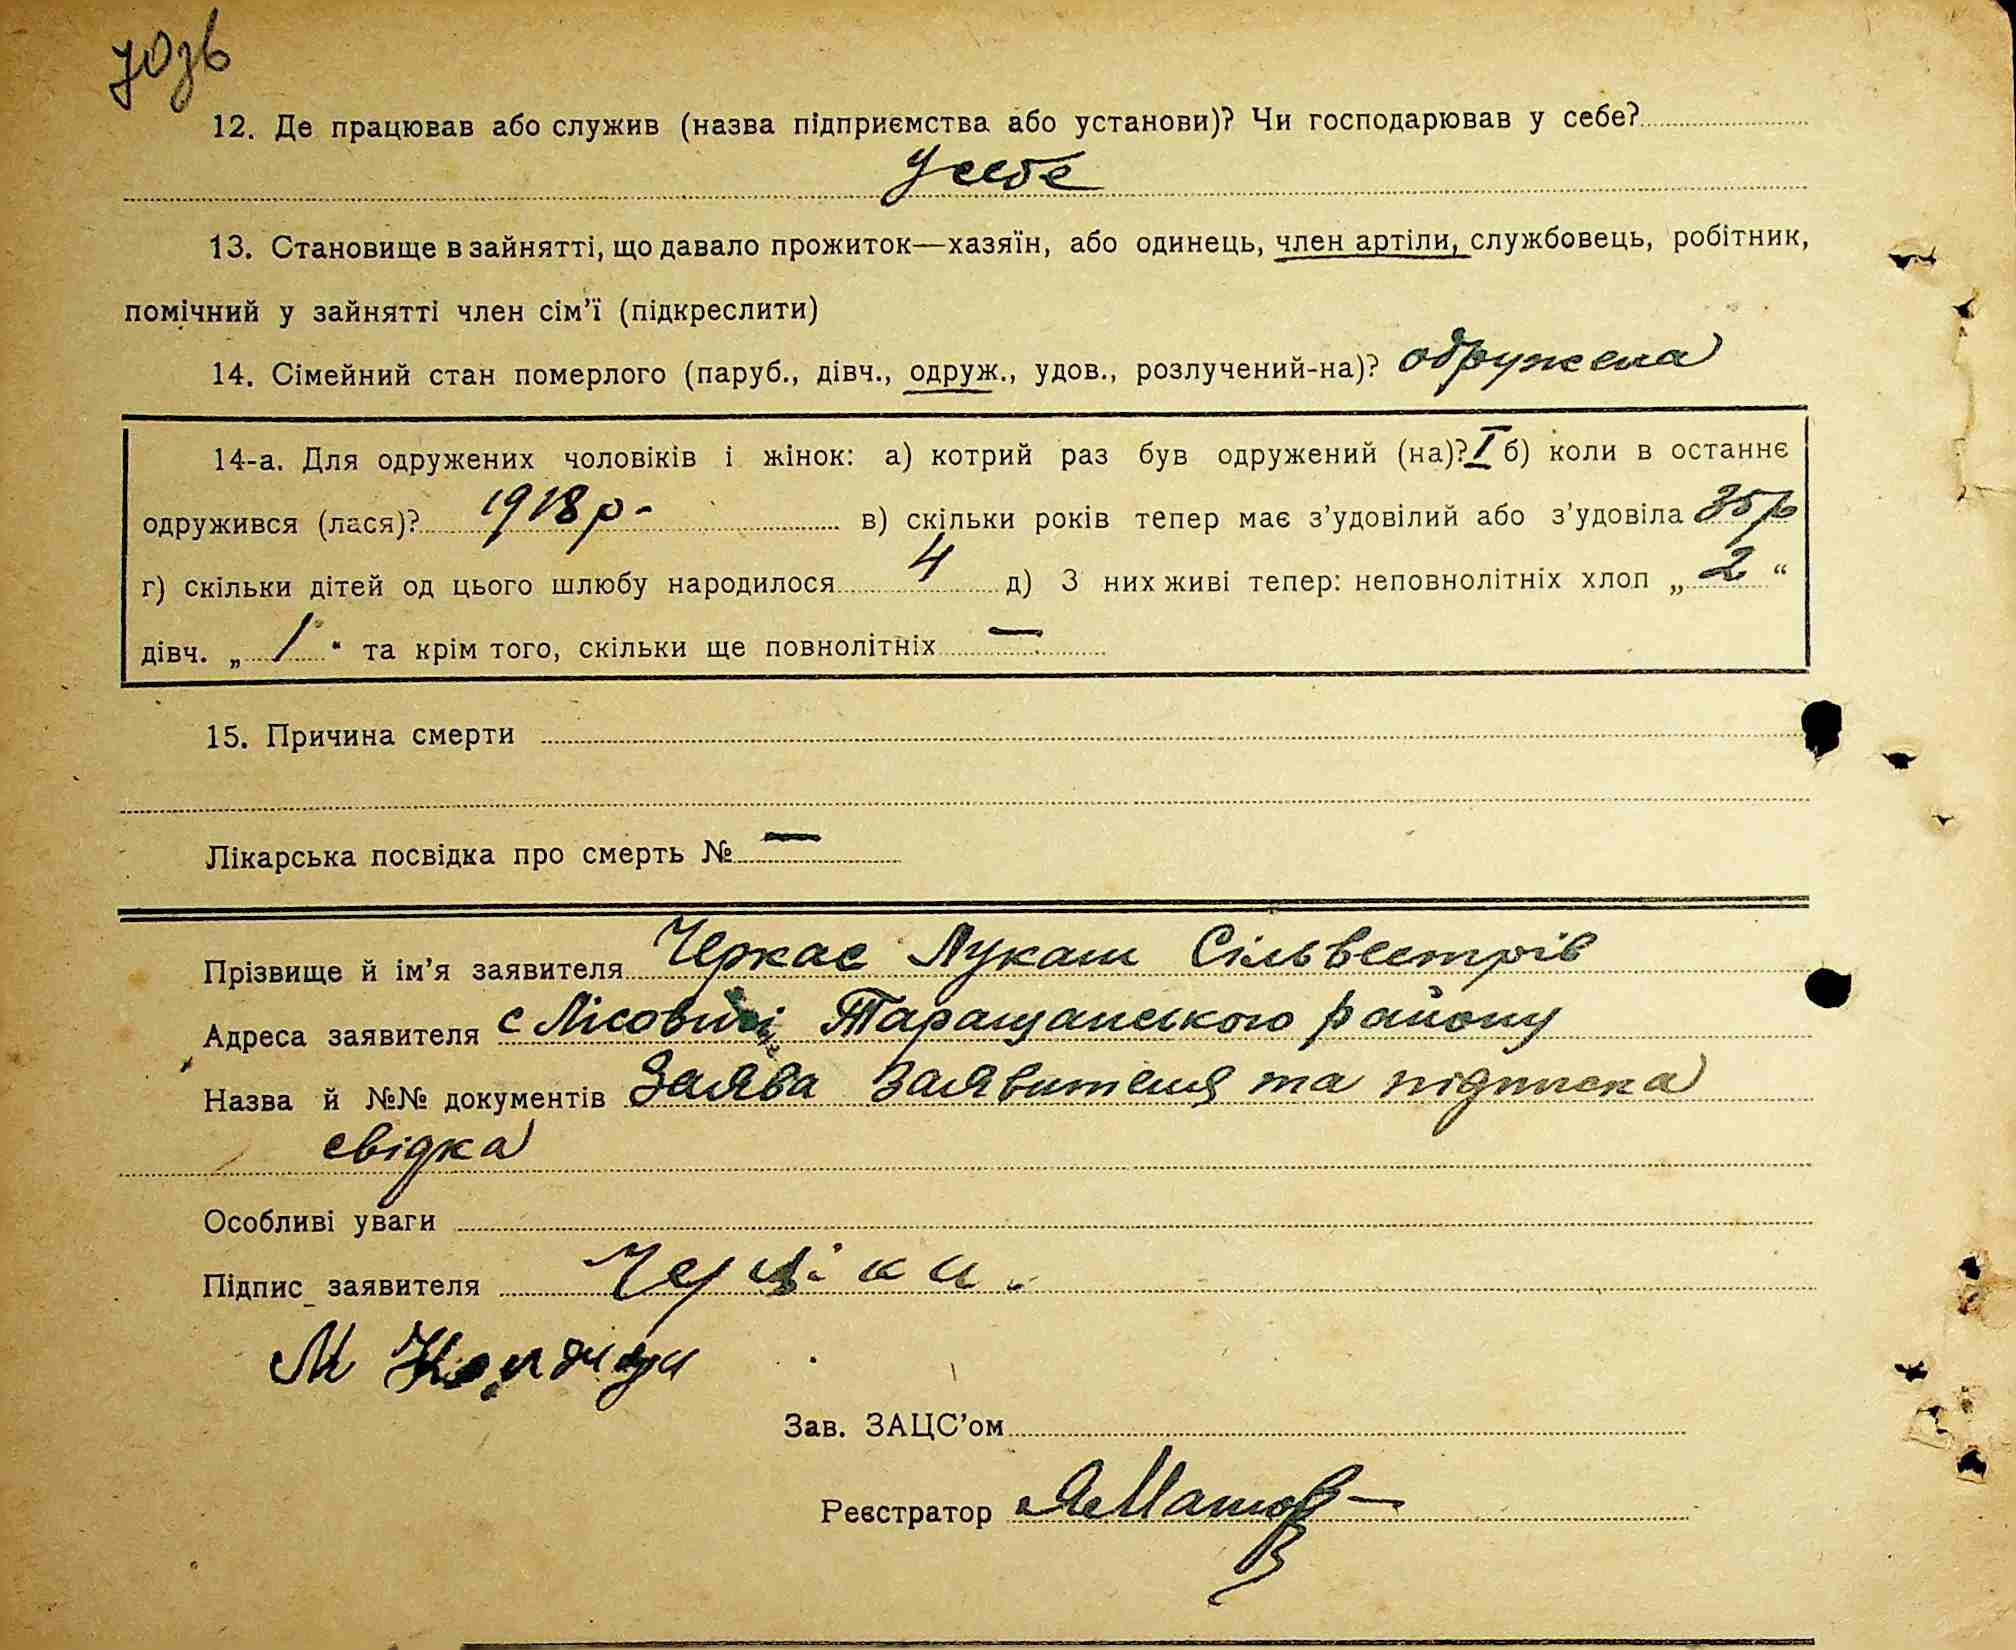 70зв
12. Де працював або служив (назва підприємства або установи)? Чи господарював у себе?
У себе
13. Становище в зайнятті, що давало прожиток—хазяїн, або одинець, член артіли, службовець, робітник,
помічний у зайнятті член сім’ї (підкреслити)
14. Сімейний стан померлого (паруб., дівч., одруж., удов., розлучений-на)? одружена
14-а. Для одружених чоловіків і жінок: а) котрий раз був одружений (на)? I б) коли в останнє
одружився (лася)? 1918 р- в) скільки років тепер має з’удовілий або з’удовіла 35 р
г) скільки дітей од цього шлюбу народилося 4 д) З них живі тепер: неповнолітніх хлоп „ 2 “
дівч. „ 1 “ та крім того, скільки ще повнолітніх —
15. Причина смерти
Лікарська посвідка про смерть № —
Прізвище й ім’я заявителя Черкас Лукаш Сільвестрів
Адреса заявителя с Лісовичі Таращанського району
Назва й №№ документів Заява заявителя та підписка
свідка
Особливі уваги
Підпис заявителя
М
Зав. ЗАЦС’ом
Реєстратор